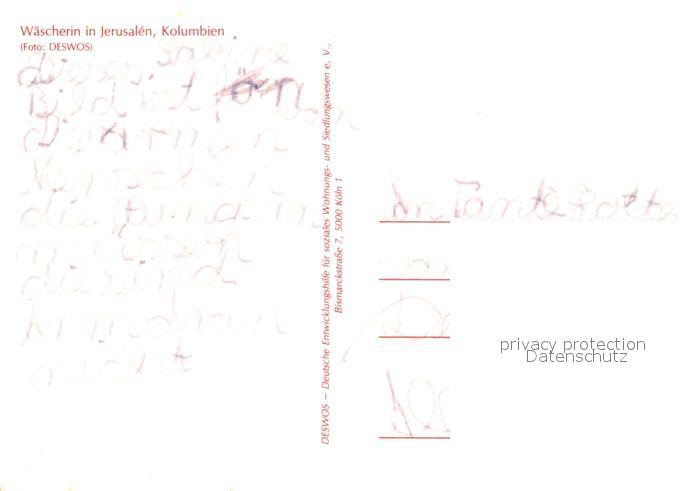 Wäscherin in Jerusalén, Kolumbien
(Foto: DESWOS)
Sabine
dieses
Bild ist von
die armen
Menschen
die Hungern
müssen
die sind
arm dran
nicht
DESWOS – Deutsche Entwicklungshilfe für soziales Wohnungs- und Siedlungswesen e. V.,
Bismarckstraße 7, 5000 Köln 1
An Tante Lotte
privacy protection
Datenschutz